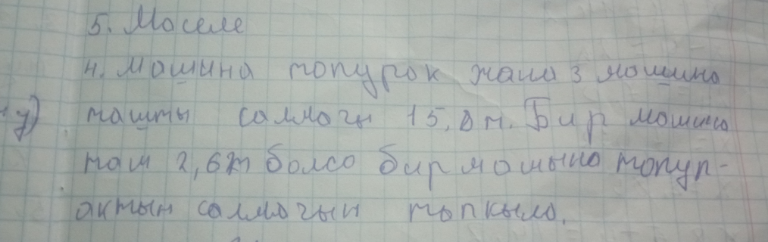 5. Маселе
4. Машина топурак жана 3 машина
у) ташты салмагы 15,8т. Бир машина
таш 2,6т болсо бир машына топур-
актын салмагын тапкыла.